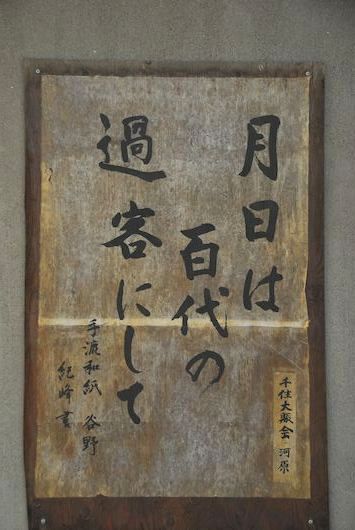 月日は
百代の
過客にして
手漉和紙 谷野
紀峰書
千住大賑会 河原